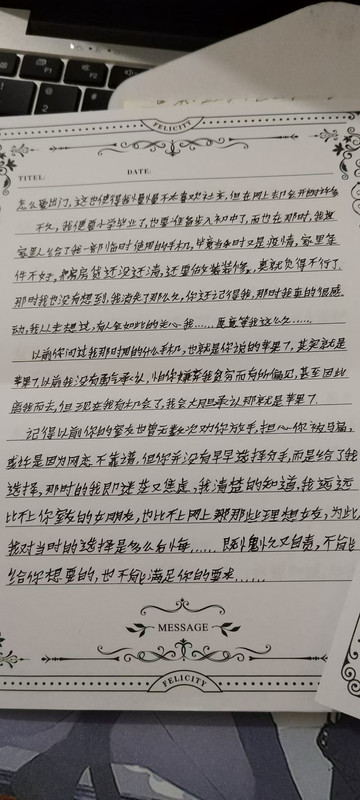 FELICITY
TITEL:
DATE:
怎么爱出门,这也使得我慢慢不太喜欢社交,但在网上却会开朗许多
不久,我便要小学毕业了,也要准备步入初中了,而也在那时,我被
家里人给了我一部临时使用的手机,毕竟当时又是疫情,家里条
件不好,把房贷还没还清,还要做装修,要就负得不行了
那时我也没有想到,我消失了那么久,你还记得我,那时我真的很感
动,我从未想过,有人会如此的关心我……愿意等我这么久……
以前你问过我那时用的什么手机,也就是你说的苹果7,其实就是
苹果7,以前我没有勇气承认,怕你嫌弃我贫穷而有所偏见,甚至因此
离我而去,但现在我有机会了,我会大胆承认那就是苹果7.
记得以前你的室友也曾无数次劝你放手,担心你被骗,
或许是因为网恋不靠谱,但你并没有早早选择分手,而是给了我
选择,那时的我即迷茫又焦虑,我清楚的知道,我远远
比不上你室友的女朋友,也比不上网上那些理想女友,为此,
我对当时的选择是多么后悔……既愧疚又自责,不能
给你想要的,也不能满足你的要求……
MESSAGE
FELICITY